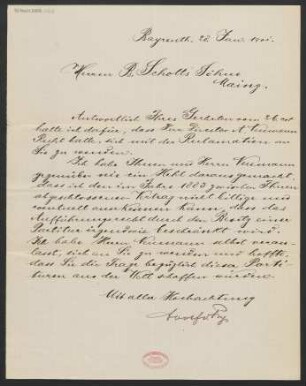 Bayreuth, 28. Jan. 1901.
Herrn B. Schotts Söhne
Mainz.
Antwortlich Ihres Geehrten vom 26. ct
halte ich dafür, dass Herr Director A. Neumann
Recht hatte, sich mit der Reclamation an
Sie zu wenden.
Ich habe Ihnen und Herrn Neumann
gegenüber nie ein Hehl daraus gemacht,
dass ich den im Jahre 1883 zwischen Ihnen
abgeschlossenen Vertrag nicht billige und
anerkennen kann, dass das
Aufführungsrecht durch den Besitz einer
Partitur irgendwie beschränkt wird.
Ich habe Herrn Neumann selbst veran-
lasst, sich an Sie zu wenden und hoffte,
dass Sie die Frage bezüglich dieser Parti-
turen aus der Welt schaffen würden.
Mit aller Hochachtung